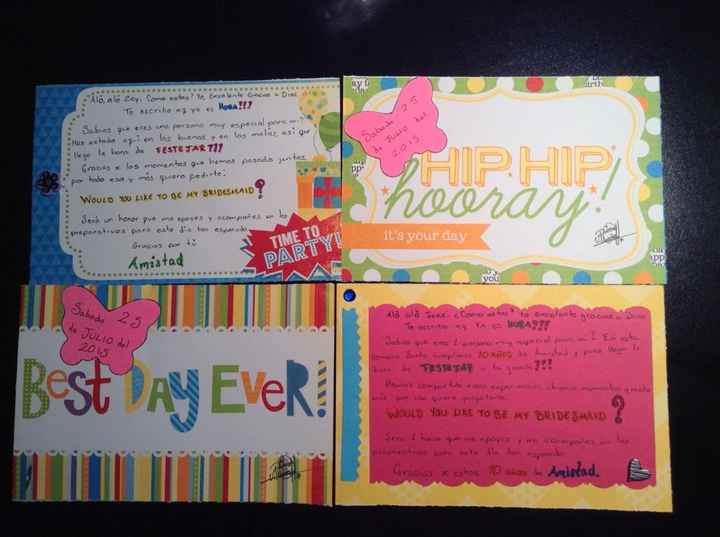 Aló, aló Zoy, Como estas? Yo Excelente Gracias a Dios
Te escribo xq ya es HORA!!!
Sabias que eres una persona muy especial para mi?
Has estado aqi en las buenas y en las malas, asi que
llego la hora de FESTEJAR???
Gracias x los momentos que hemos pasado juntas
por todo eso y más quiero pedirte:
WOULD YOU LIKE TO BE MY BRIDESMAID?
Será un honor que me apoyes y acompañes en los
preparativos para este día tan esperado
Gracias por tú
Amistad
TIME TO
PARTY!
Sabado 25
de Julio del
2015
HIP HIP
hooray!
it's your day
you
Sabado 25
de JULIO del
2015
BEST DAY EVER!
Aló aló ¿Como estas? Yo Excelente gracias a Dios
Te escribo xq Ya es HORA???
Sabias que eres 1 persona muy especial para mi? En este
10 AÑOS de Amistad y pues llego la
hora de FESTEJAR
Hemos compartido
más por eso quiero
WOULD YOU LIKE TO BE MY BRIDESMAID?
Sera 1 honor que me apoyes y me acompañes en los
preparativos para este día tan esperado
Gracias x estos 10 años de Amistad.